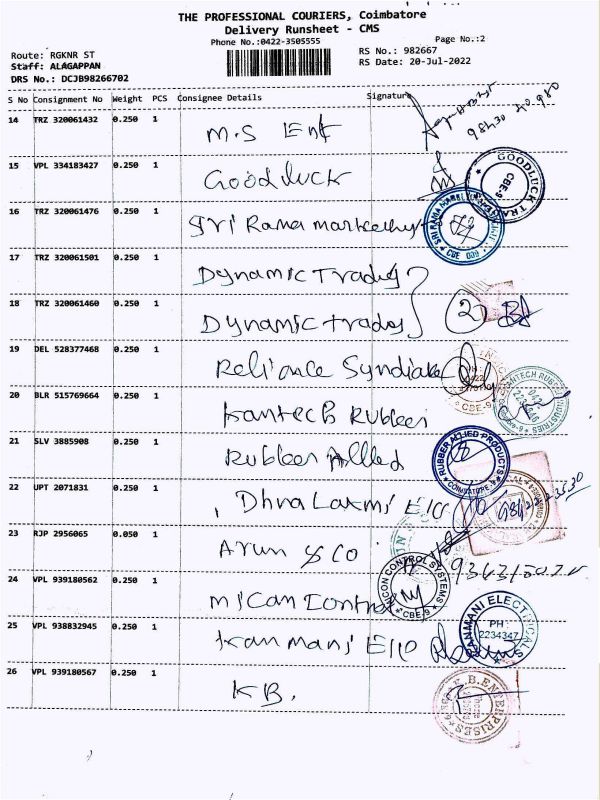 THE PROFESSIONAL COURIERS, Coimbatore
Delivery Runsheet - CMS
Phone No.:0422-3505555
Page No.:2
Route: RGKNR ST
RS No.: 982667
Staff: ALAGAPPAN
RS Date: 20-Jul-2022
DRS No.: DCJB98266702
S No Consignment No Weight PCS Consignee Details Signature
14 TRZ 320061432 0.250 1 M.S Ent
98430 40980
15 VPL 334183427 0.250 1 Goodluck
GOODLUCK TRA CBE-9
16 TRZ 320061476 0.250 1 Sri Rama
SRI RAMA CBE 009
17 TRZ 320061501 0.250 1 Dynamic Trades
18 TRZ 320061460 0.250 1 Dynamic trades 2
19 DEL 528377468 0.250 1 Reliance Syndicate
CBE-9
20 BLR 515769664 0.250 1 Kantech Rubber
KANTECH RUBBER INDUSTRIES
21 SLV 3885908 0.250 1 Rubber Allied
RUBBER ALLIED PRODUCTS COIMBATORE
22 UPT 2071831 0.250 1 Dhva Laxmi Elec
23 RJP 2956065 0.050 1 Arun & Co
24 VPL 939180562 0.250 1 Micon Control
MICON CONTROL SYSTEMS CBE-9
25 VPL 938832945 0.250 1 Kanmani Elec
KANMANI ELECTRICALS PH: 2234347
26 VPL 939180567 0.250 1 KB.
K.B.ENTERPRISES